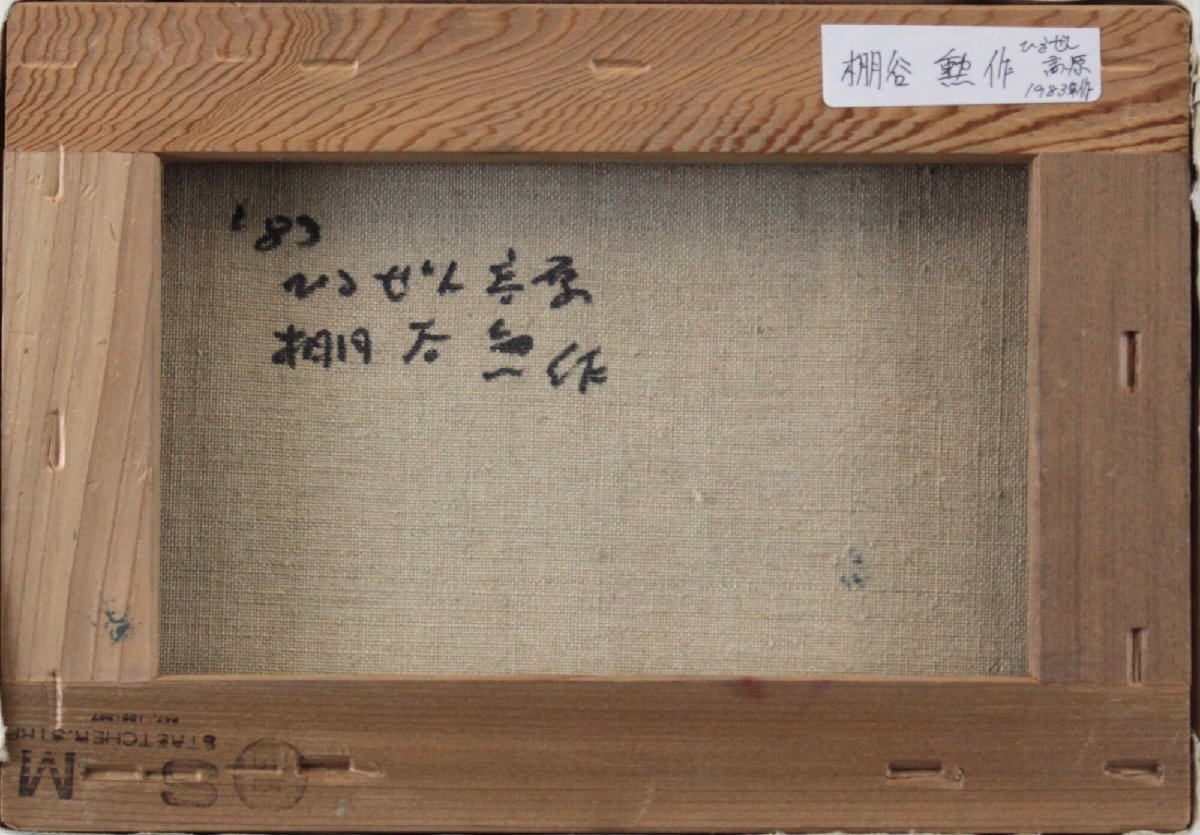 棚谷 勲 作
ひるぜん
高原
1983年作
'83
ひるぜん高原
棚谷 勲 作
STRETCHER.STRIP
SM